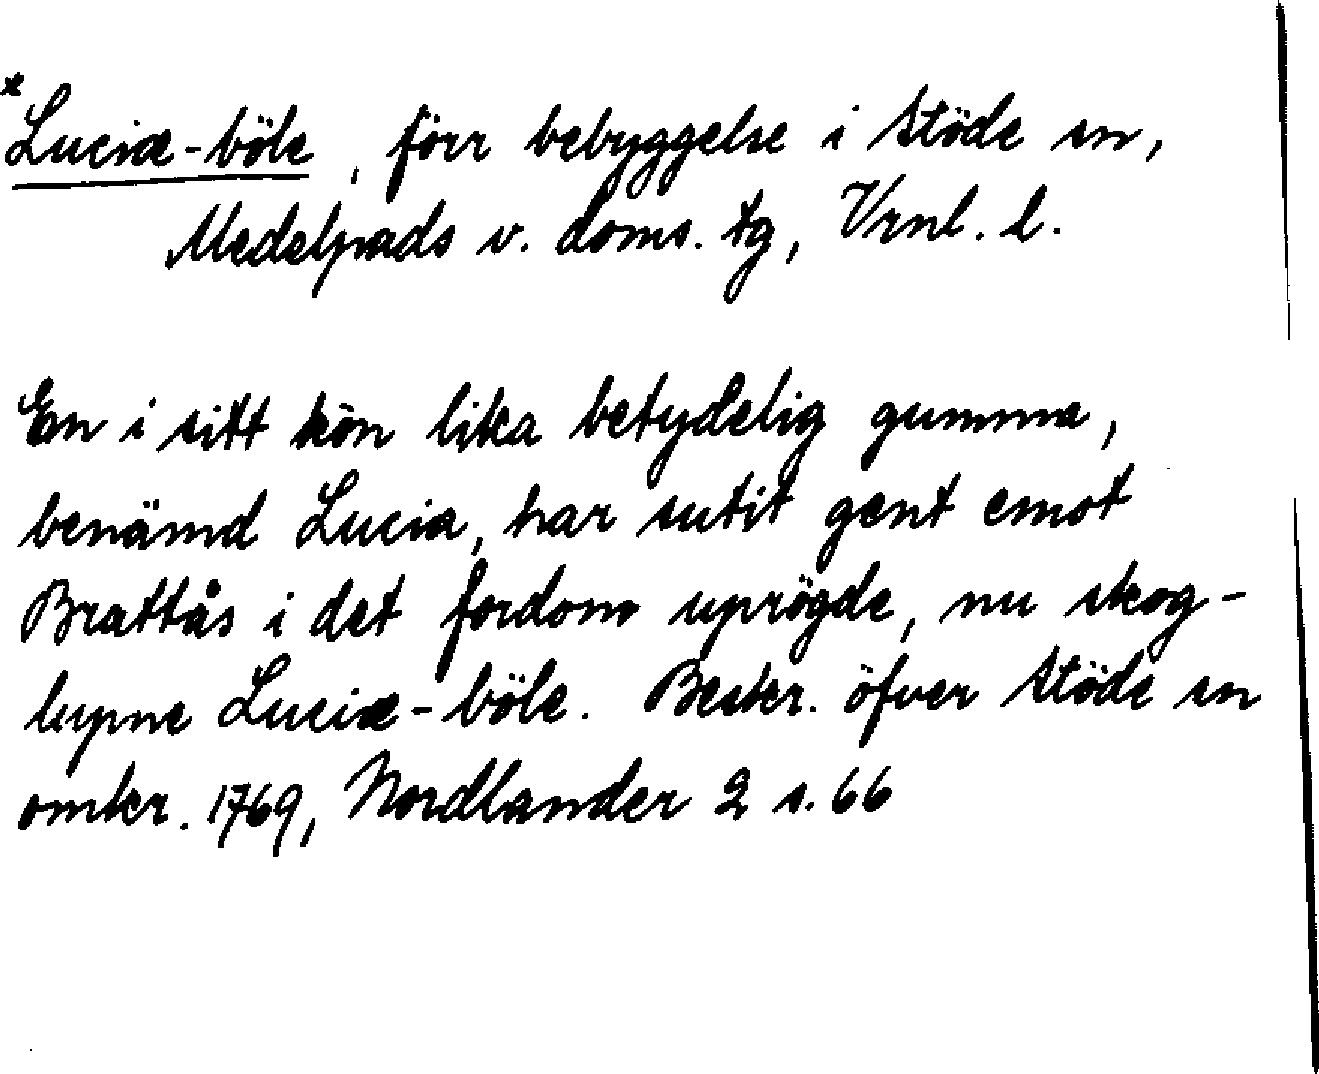 *Luciæ-böle, förr bebyggelse i Stöde sn,
Medelpads v. doms. tg, Vrnl. l.
En i sitt kön lika betydelig gumma,
benämd Lucia, har sutit gent emot
Brattås i det fordom uprögde, nu skog-
lupne Luciæ-böle. Beskr. öfver Stöde sn
omkr. 1769, Nordlander 2 s. 66